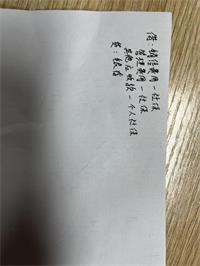 借：销售费用－社保
管理费用－社保
其他应收款－个人社保
贷：银存